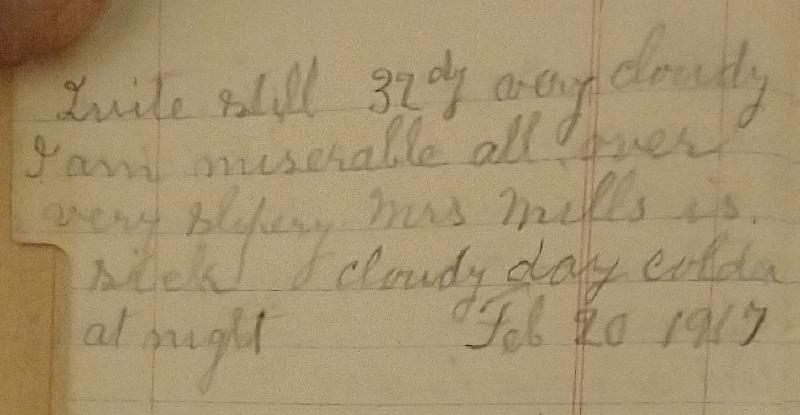 Quite still 32 dg very cloudy
I am miserable all over
very slipery Mrs Mills is.
sick cloudy day colda
at night Feb 20 1917